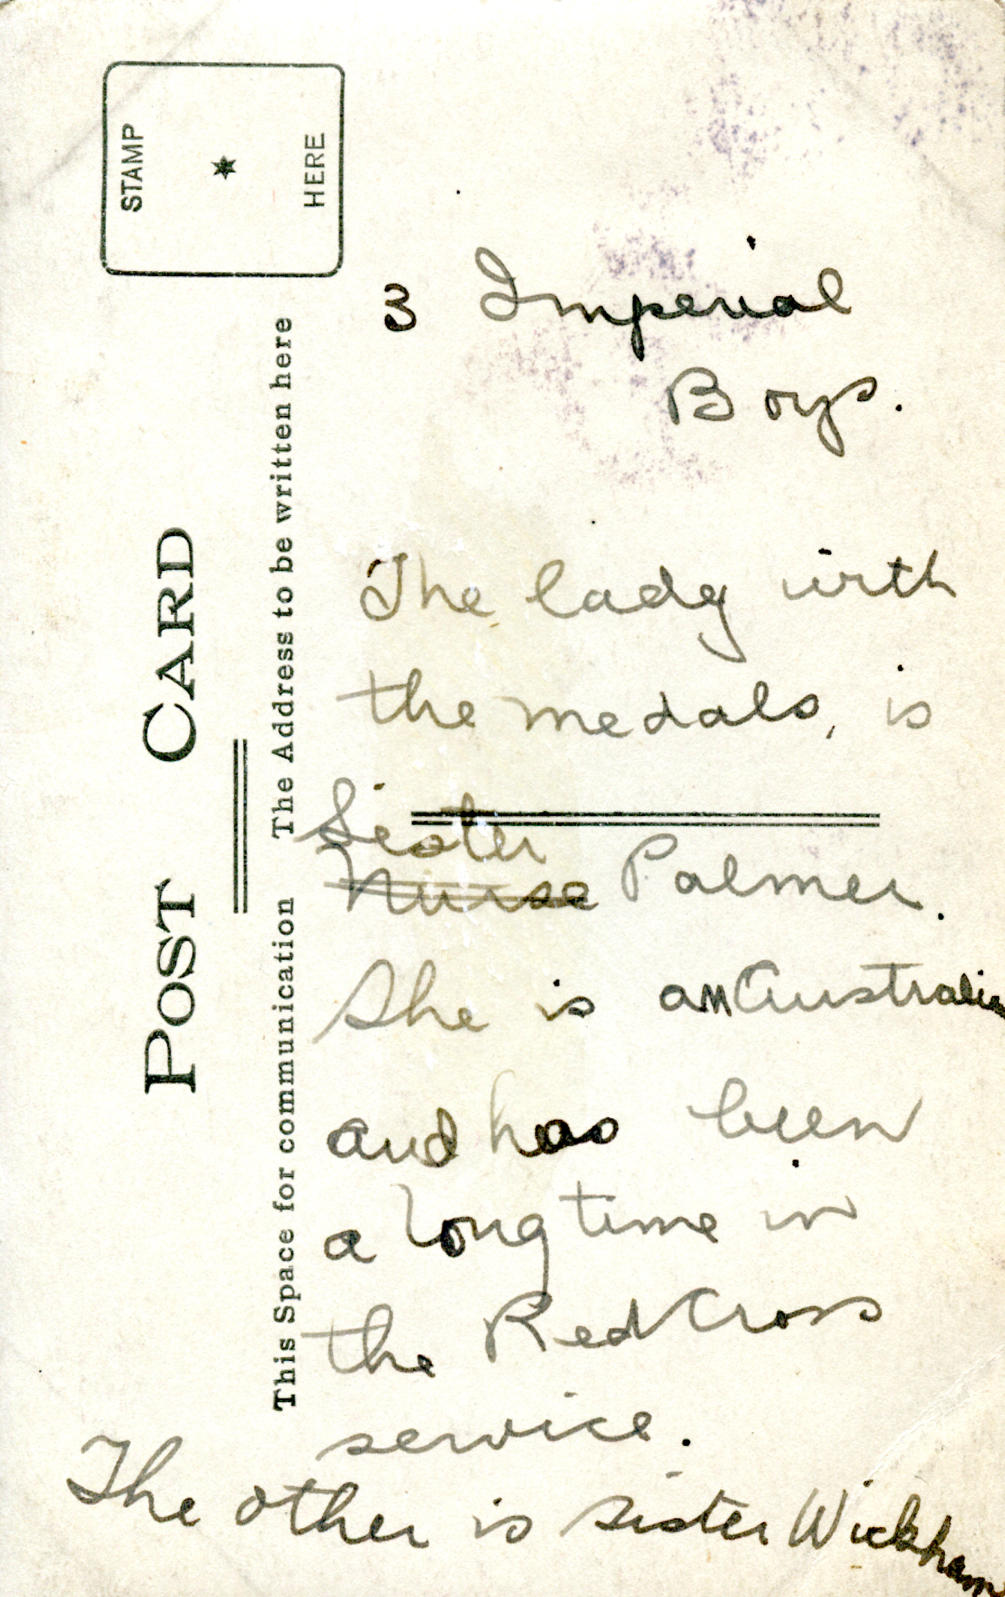 STAMP
HERE
POST CARD
The Address to be written here
This Space for communication
3 Imperial
Boys.
The lady with
the medals, is
Sister
Nurse Palmer.
She is an Australian
and has been
a long time in
the Red Cross
service.
The other is sister Wickham